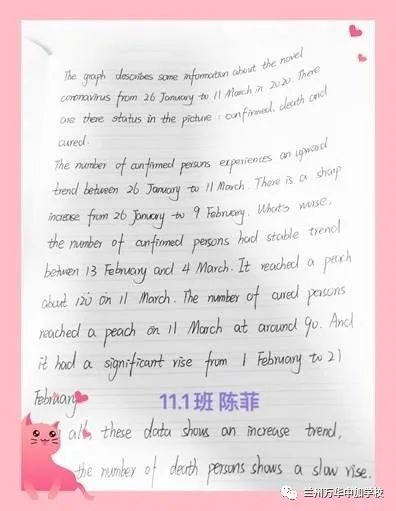 The graph describes some information about the novel
coronavirus from 26 January to 11 March in 2020. There
are there status in the picture : confirmed, death and
cured.
The number of confirmed persons experiences an upward
trend between 26 January to 11 March. There is a sharp
increase from 26 January to 9 February. What's worse,
the number of confirmed persons had stable trend
between 13 February and 4 March. It reached a peach
about 120 on 11 March. The number of cured persons
reached a peach on 11 March at around 90. And
it had a significant rise from 1 February to 21
February
11.1班 陈菲
all these data shows an increase trend,
the number of death persons shows a slow rise.
兰州万华中加学校